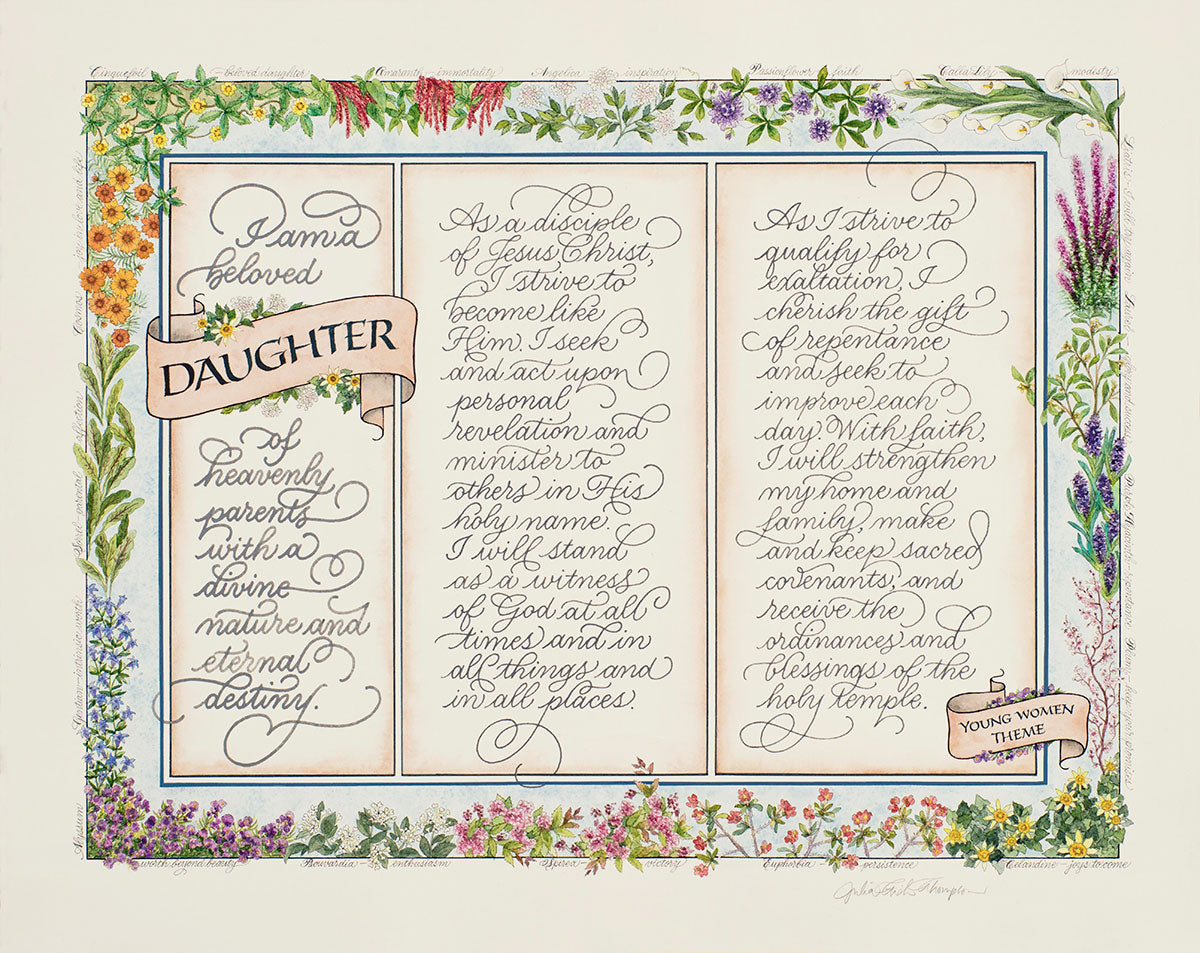 Cinquefoil — beloved daughter
Amaranth — immortality
Angelica — inspiration
Passionflower — faith
Calla Lily — modesty
I am a
beloved
DAUGHTER
of
heavenly
parents
with a
divine
nature and
eternal
destiny.
As a disciple
of Jesus Christ,
I strive to
become like
Him. I seek
and act upon
personal
revelation and
minister to
others in His
holy name.
I will stand
as a witness
of God at all
times and in
all things and
in all places.
As I strive to
qualify for
exaltation, I
cherish the gift
of repentance
and seek to
improve each
day. With faith,
I will strengthen
my home and
family, make
and keep sacred
covenants, and
receive the
ordinances and
blessings of the
holy temple.
YOUNG WOMEN
THEME
Cosmos
Sorrel — parental affection
Gentian — intrinsic worth
Alyssum
worth beyond beauty
Bouvardia — enthusiasm
Spirea — victory
Euphorbia — persistence
Celandine — joys to come
Thompson